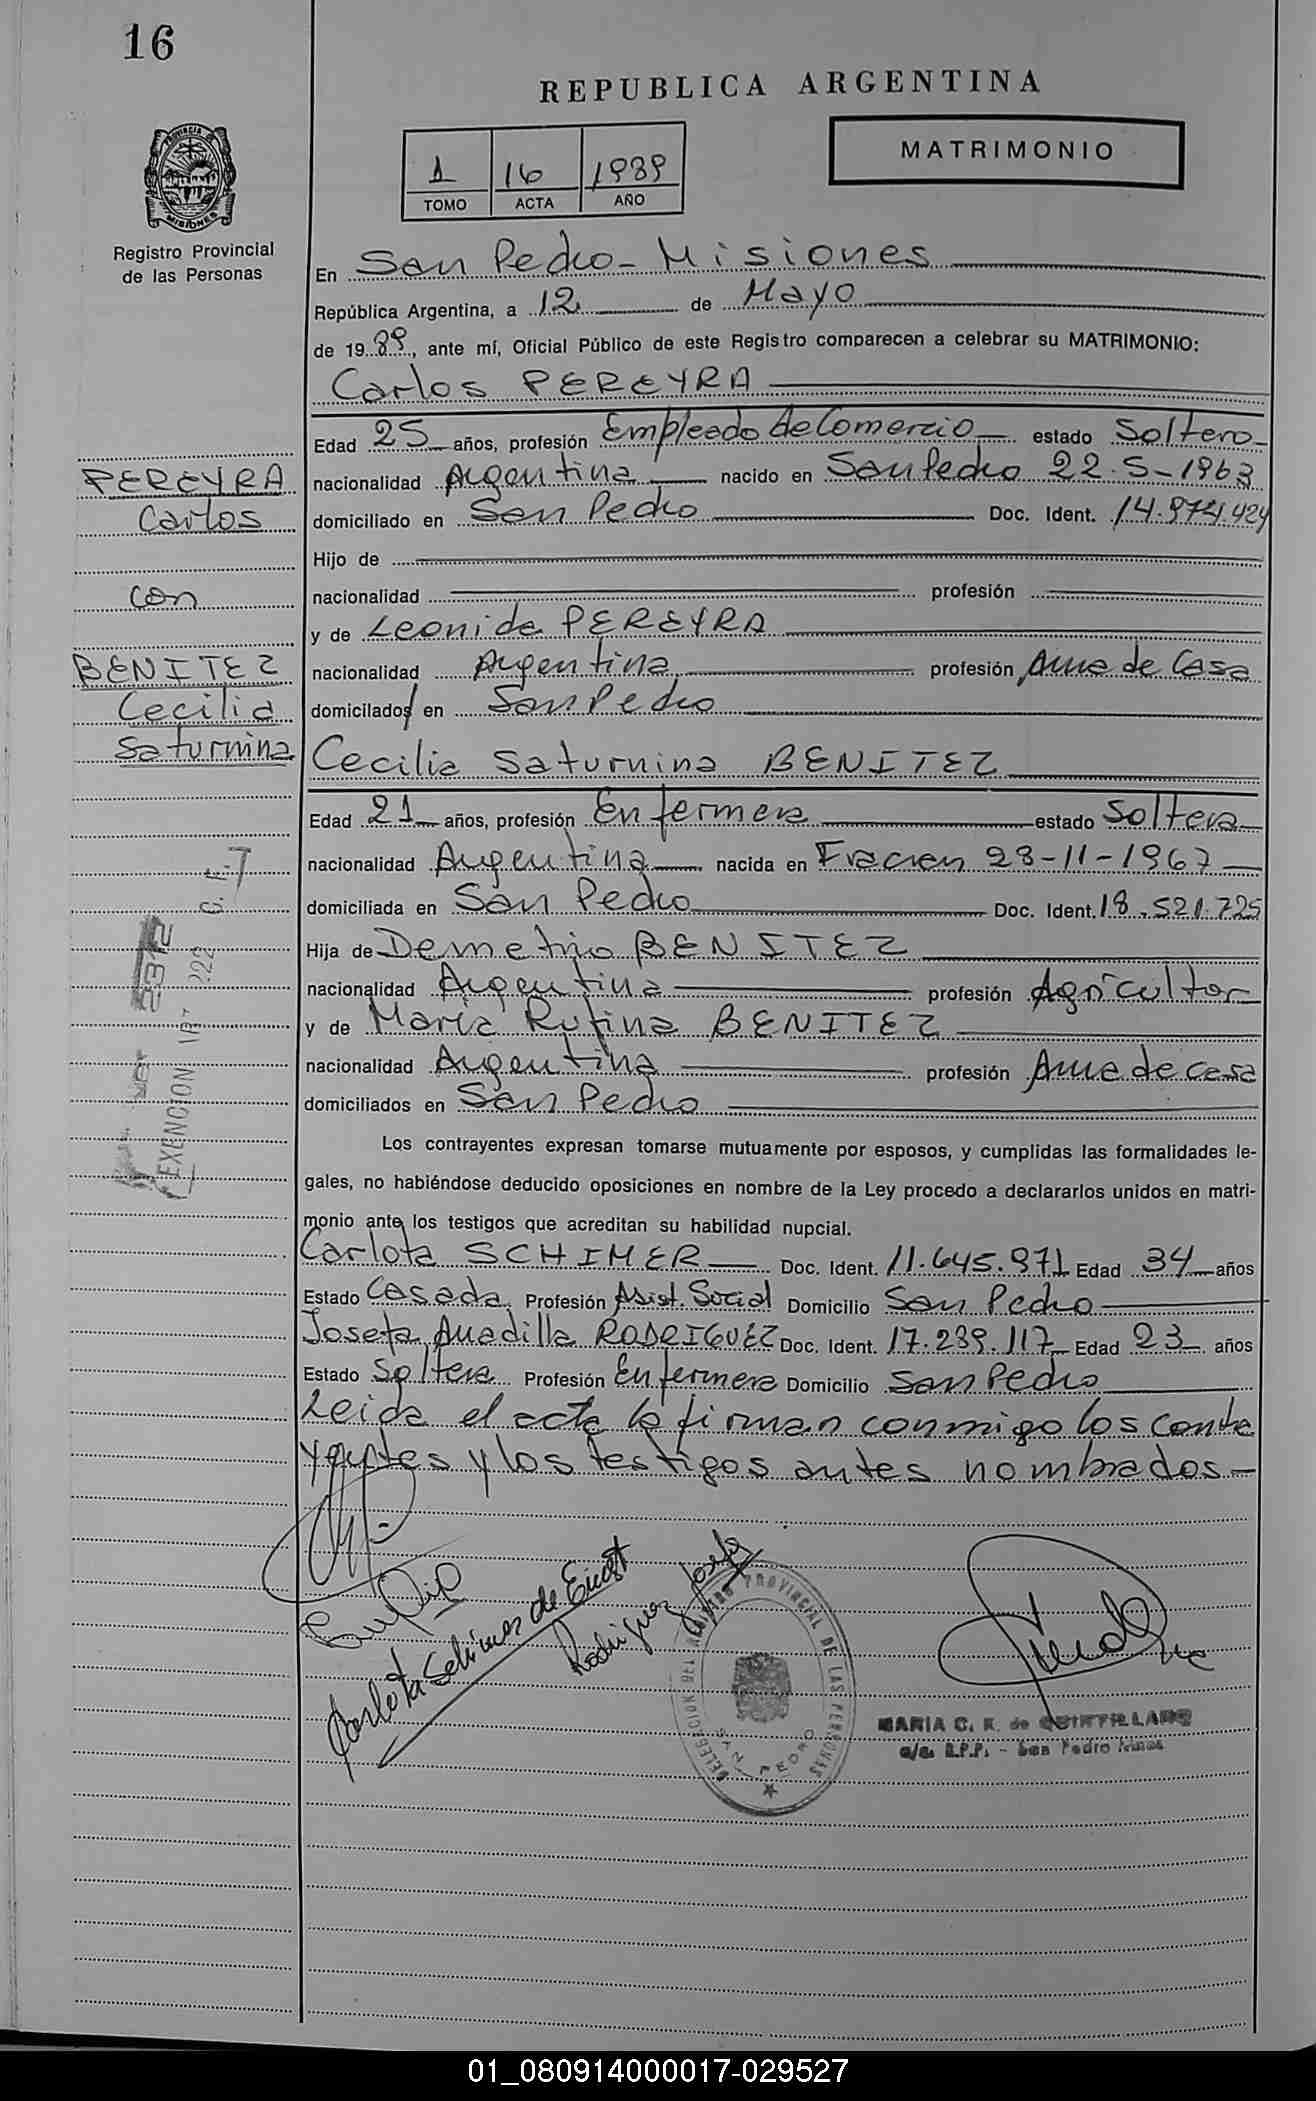 16
REPUBLICA ARGENTINA
MATRIMONIO
1 16 1989
TOMO ACTA AÑO
PROVINCIA DE MISIONES
Registro Provincial
de las Personas
En San Pedro - Misiones
República Argentina, a 12 de Mayo
de 19 89, ante mí, Oficial Público de este Registro comparecen a celebrar su MATRIMONIO:
Carlos PEREYRA
Edad 25 años, profesión Empleado de Comercio estado Soltero
PEREYRA
nacionalidad Argentina nacido en San Pedro 22-5-1963
Carlos
domiciliado en San Pedro Doc. Ident. 14.974.424
Hijo de
con
nacionalidad profesión
y de Leonida PEREYRA
BENITEZ
nacionalidad Argentina profesión Ama de Casa
Cecilia
domicilados en San Pedro
Saturnina
Cecilia Saturnina BENITEZ
Edad 21 años, profesión Enfermera estado Soltera
nacionalidad Argentina nacida en Fracran 28-11-1967
domiciliada en San Pedro Doc. Ident. 18.521.725
Hija de Demetrio BENITEZ
nacionalidad Argentina profesión Agricultor
y de Maria Rufina BENITEZ
nacionalidad Argentina profesión Ama de casa
domiciliados en San Pedro
EXENCION
2312
222
Los contrayentes expresan tomarse mutuamente por esposos, y cumplidas las formalidades le-
gales, no habiéndose deducido oposiciones en nombre de la Ley procedo a declararlos unidos en matri-
monio ante los testigos que acreditan su habilidad nupcial.
Carlota SCHIMER Doc. Ident. 11.645.971 Edad 34 años
Estado Casada Profesión Asist. Social Domicilio San Pedro
Josefa Anadilla RODRIGUEZ Doc. Ident. 17.239.117 Edad 23 años
Estado Soltera Profesión Enfermera Domicilio San Pedro
Leida el acta la firman conmigo los contra
yentes y los testigos antes nombrados-
Carlota Schimer de
Rodriguez Josefa
DELEGACION DEL REGISTRO PROVINCIAL DE LAS PERSONAS
SAN PEDRO
MARIA C. K. de QUINTILLANO
a/c. R.P.P. - San Pedro Mnes.
01_080914000017-029527